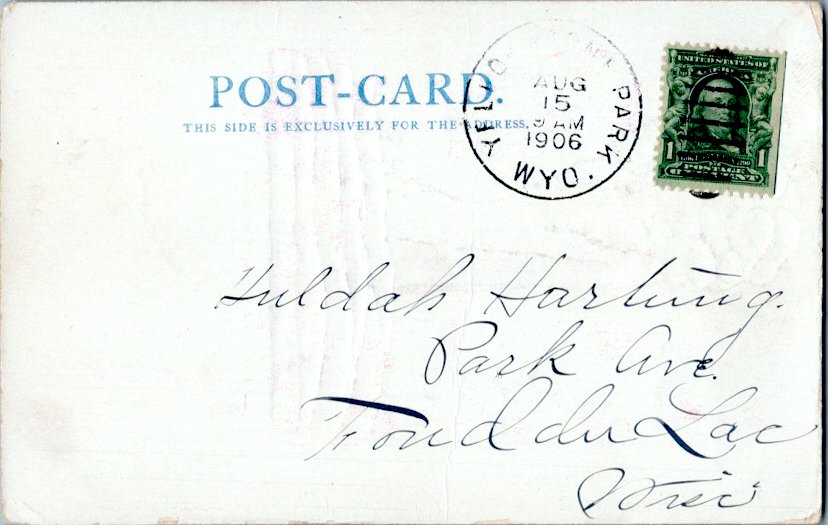 POST-CARD.
THIS SIDE IS EXCLUSIVELY FOR THE ADDRESS.
PARK
WYO.
AUG
15
9 AM
1906
UNITED STATES OF
AMERICA
1 1
POSTAGE
Huldah Hartung.
Park Ave.
Fond du Lac
Wisc